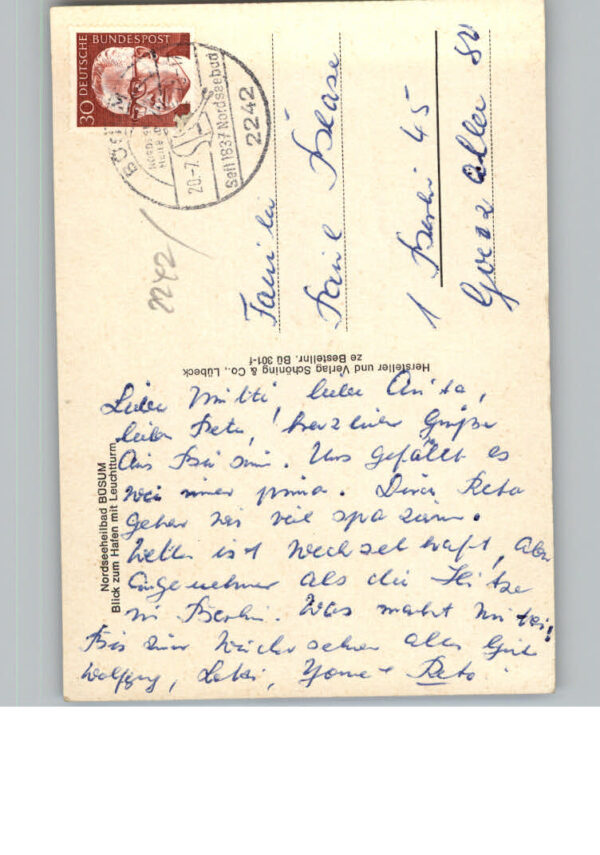 DEUTSCHE BUNDESPOST
30
BÜSUM
20.-7.
Seit 1837 Nordseebad
2242
2242
Familie
Paul Blase
1 Berlin 45
Goerzallee
Hersteller und Verlag Schöning & Co., Lübeck
ze Bestellnr. Bü 301-f
Nordseeheilbad BÜSUM
Blick zum Hafen mit Leuchtturm
Lieber Mutti, liebe Anita,
lieber Peter, herzliche Grüße
aus Büsum. Uns gefällt es
wie immer prima. Durch Reto
gehen wir viel spazieren.
Wetter ist wechselhaft, aber
angenehmer als die Hitze
in Berlin. Was macht
Bis zum Wiedersehen alles Gute
Wolfgang, Yvonne + Reto